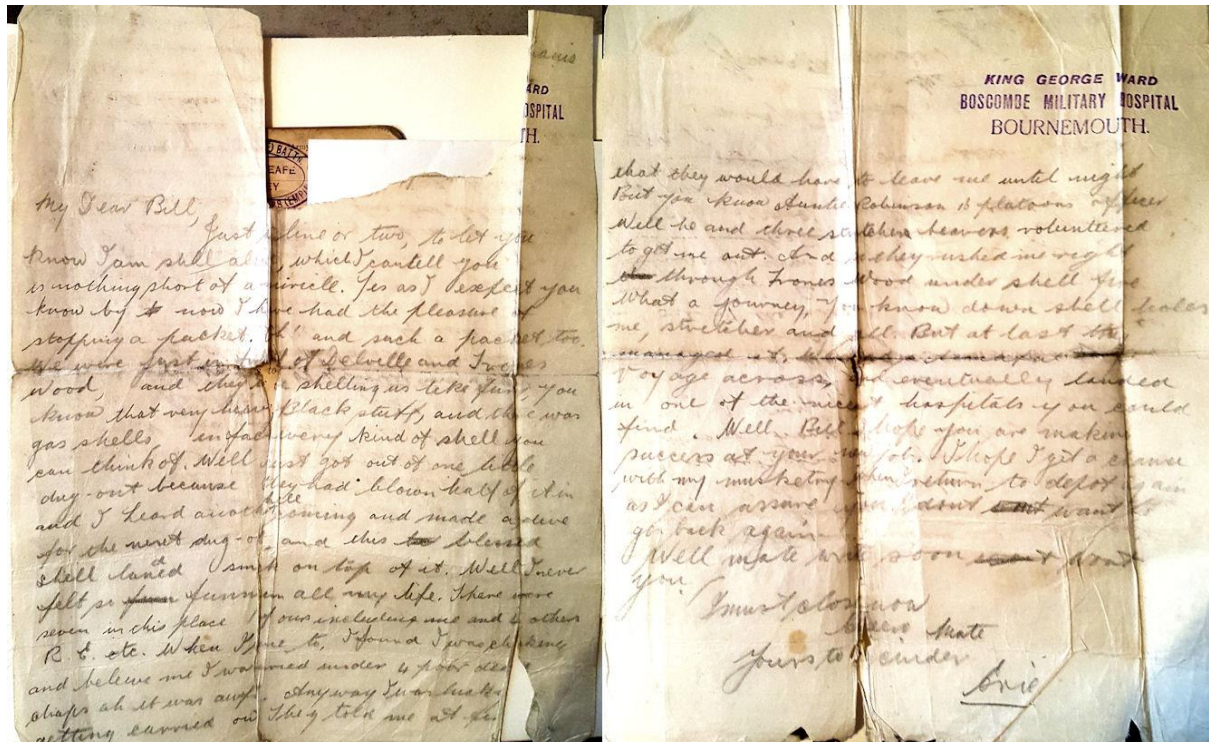 ARD
OSPITAL
TH.
BATTN
My Dear Bill,
Just a line or two, to let you
know I am still alive, which I can tell you
is nothing short of a miricle. Yes as I expect you
know by now I have had the pleasure of
stopping a packet. and such a packet too.
We were just in front of Delville and Trones
Wood, and they were shelling us like fun, you
know that very heavy Black stuff, and there was
gas shells, in fact every kind of shell you
can think of. Well just got out of one little
dug-out because they had blown half of it in
and I heard another coming and made a dive
for the next dug-out, and this blessed
shell landed smck on top of it. Well I never
felt so funny in all my life. There were
seven in this place of ous including me and 4 others
R. E. etc. When I came to, I found I was choking
and believe me I was buried under 4 poor dead
chaps ah it was awful. Anyway I was lucky
getting carried out They told me at first
KING GEORGE WARD
BOSCOMBE MILITARY HOSPITAL
BOURNEMOUTH.
that they would have to leave me until night
But you know Auntie Robinson platoons officer
Well he and three stretcher bearers volunteered
to get me out. And they rushed me right
through Trones Wood under shell fire
What a journey, you know down shell holes
me, stretcher and all. But at last
managed it.
voyage across, and eventually landed
in one of the nicest hospitals you could
find. Well Bill I hope you are making
success at your new job. I hope I get a chance
with my musketry when I return to depot again
as I can assure you I dont want to
go back again
Well mate write soon wont
you
I must close now
Cheero Mate
Yours to a cinder
Eric